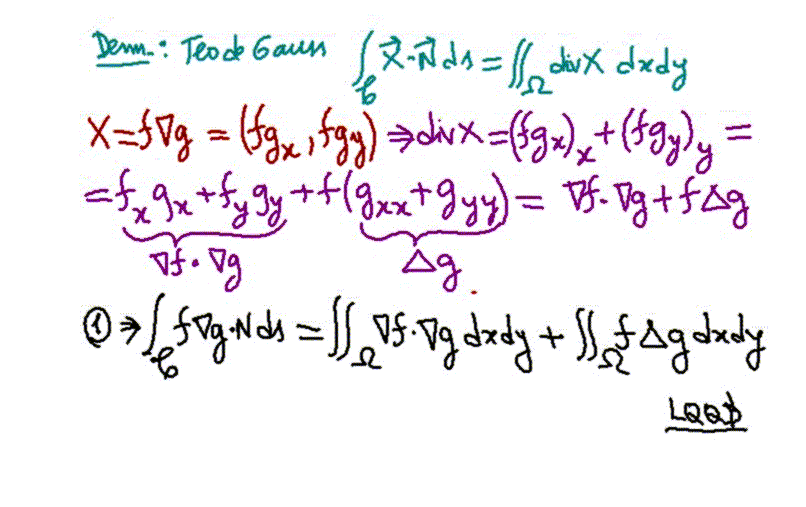 Dem.: Teo de Gauss ∫_C X⃗·N⃗ ds = ∬_Ω divX dxdy
X = f∇g = (fg_x, fg_y) ⇒ divX = (fg_x)_x + (fg_y)_y =
= f_x g_x + f_y g_y + f(g_xx + g_yy) = ∇f·∇g + fΔg
∇f·∇g Δg
① ⇒ ∫_C f∇g·N ds = ∬_Ω ∇f·∇g dxdy + ∬_Ω fΔg dxdy
LQQD